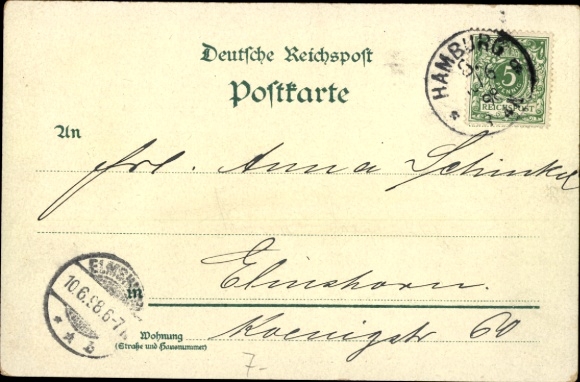 Deutsche Reichspost
Postkarte
HAMBURG
5
REICHSPOST
An
Frl. Anna Schinkel
Elmshorn.
in
ELMSHORN
10.6.98.6-7
* b
Koenigstr 60
Wohnung
(Straße und Hausnummer)
7.-